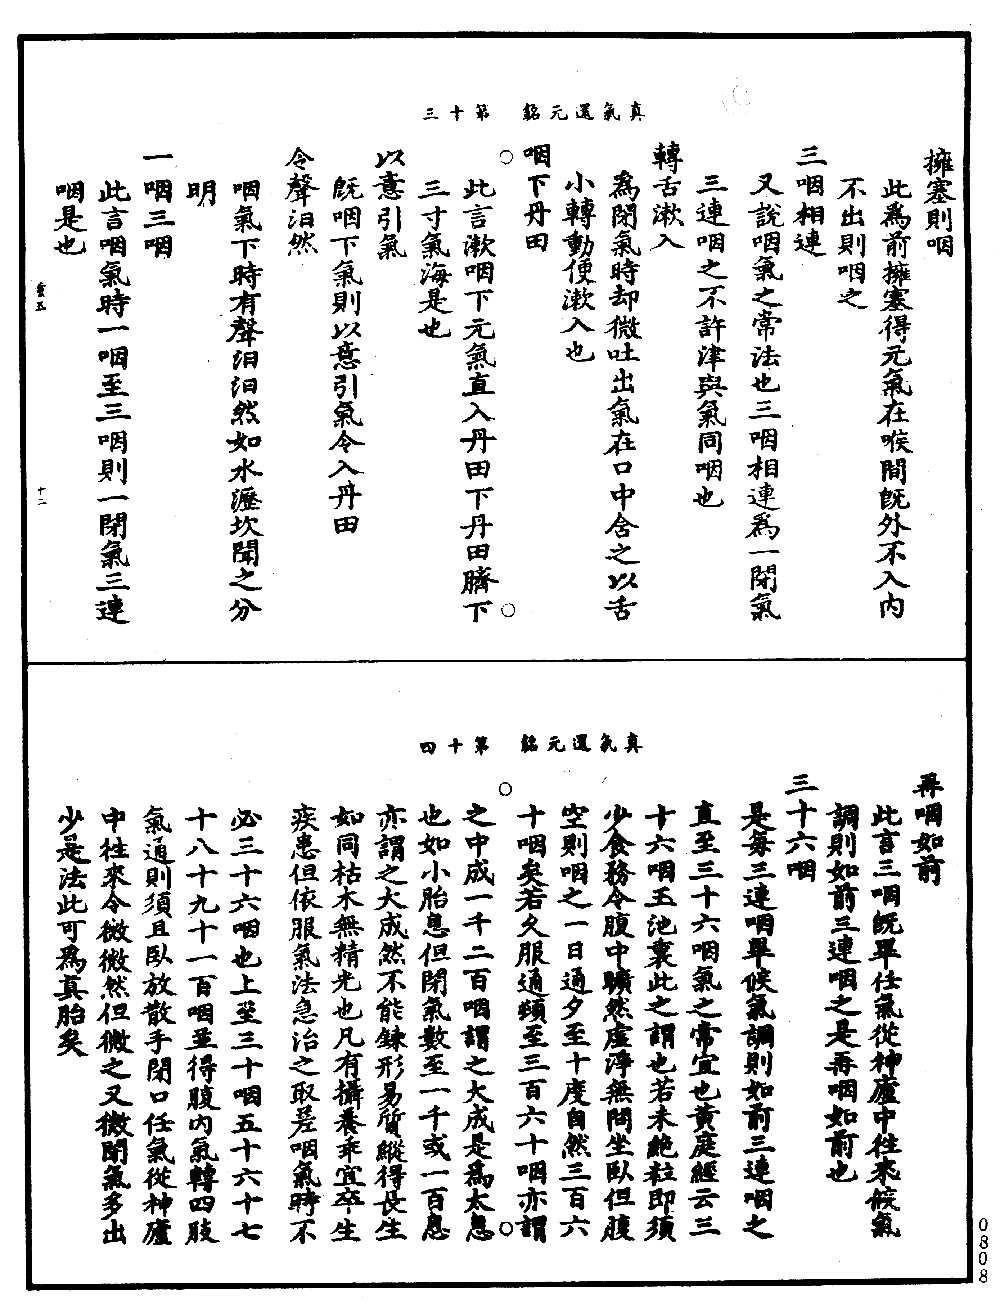 真氣還元銘　第十三
擁塞則咽
此為前擁塞得元氣在喉間既外不入內
不出則咽之
三咽相連
又說咽氣之常法也三咽相連為一閉氣
三連咽之不許津與氣同咽也
轉舌漱入
為閉氣時却微吐出氣在口中含之以舌
小轉動便漱入也
咽下丹田
此言漱咽下元氣直入丹田下丹田臍下
三寸氣海是也
以意引氣
既咽下氣則以意引氣令入丹田
令聲汨然
咽氣下時有聲汨汨然如水瀝坎聞之分
明
一咽三咽
此言咽氣時一咽至三咽則一閉氣三連
咽是也
十二
真氣還元銘　第十四
再咽如前
此言三咽既畢任氣從神廬中往來候氣
調則如前三連咽之是再咽如前也
三十六咽
是每三連咽畢候氣調則如前三連咽之
直至三十六咽氣之常宜也黃庭經云三
十六咽玉池裏此之謂也若未絕粒即須
少食務令腹中曠然虛淨無問坐臥但腹
空則咽之一日通夕至十度自然三百六
十咽矣若久服通頻至三百六十咽亦謂
之中成一千二百咽謂之大成是為太息
也如小胎息但閉氣數至一千或一百息
亦謂之大成然不能鍊形易質縱得長生
如同枯木無精光也凡有攝養乖宜卒生
疾患但依服氣法急治之取差咽氣時不
必三十六咽也上至三十咽五十六十七
十八十九十一百咽並得腹內氣轉四肢
氣通則須且臥放散手閉口任氣從神廬
中往來令微微然但微之又微閉氣多出
少是法此可為真胎矣
0808